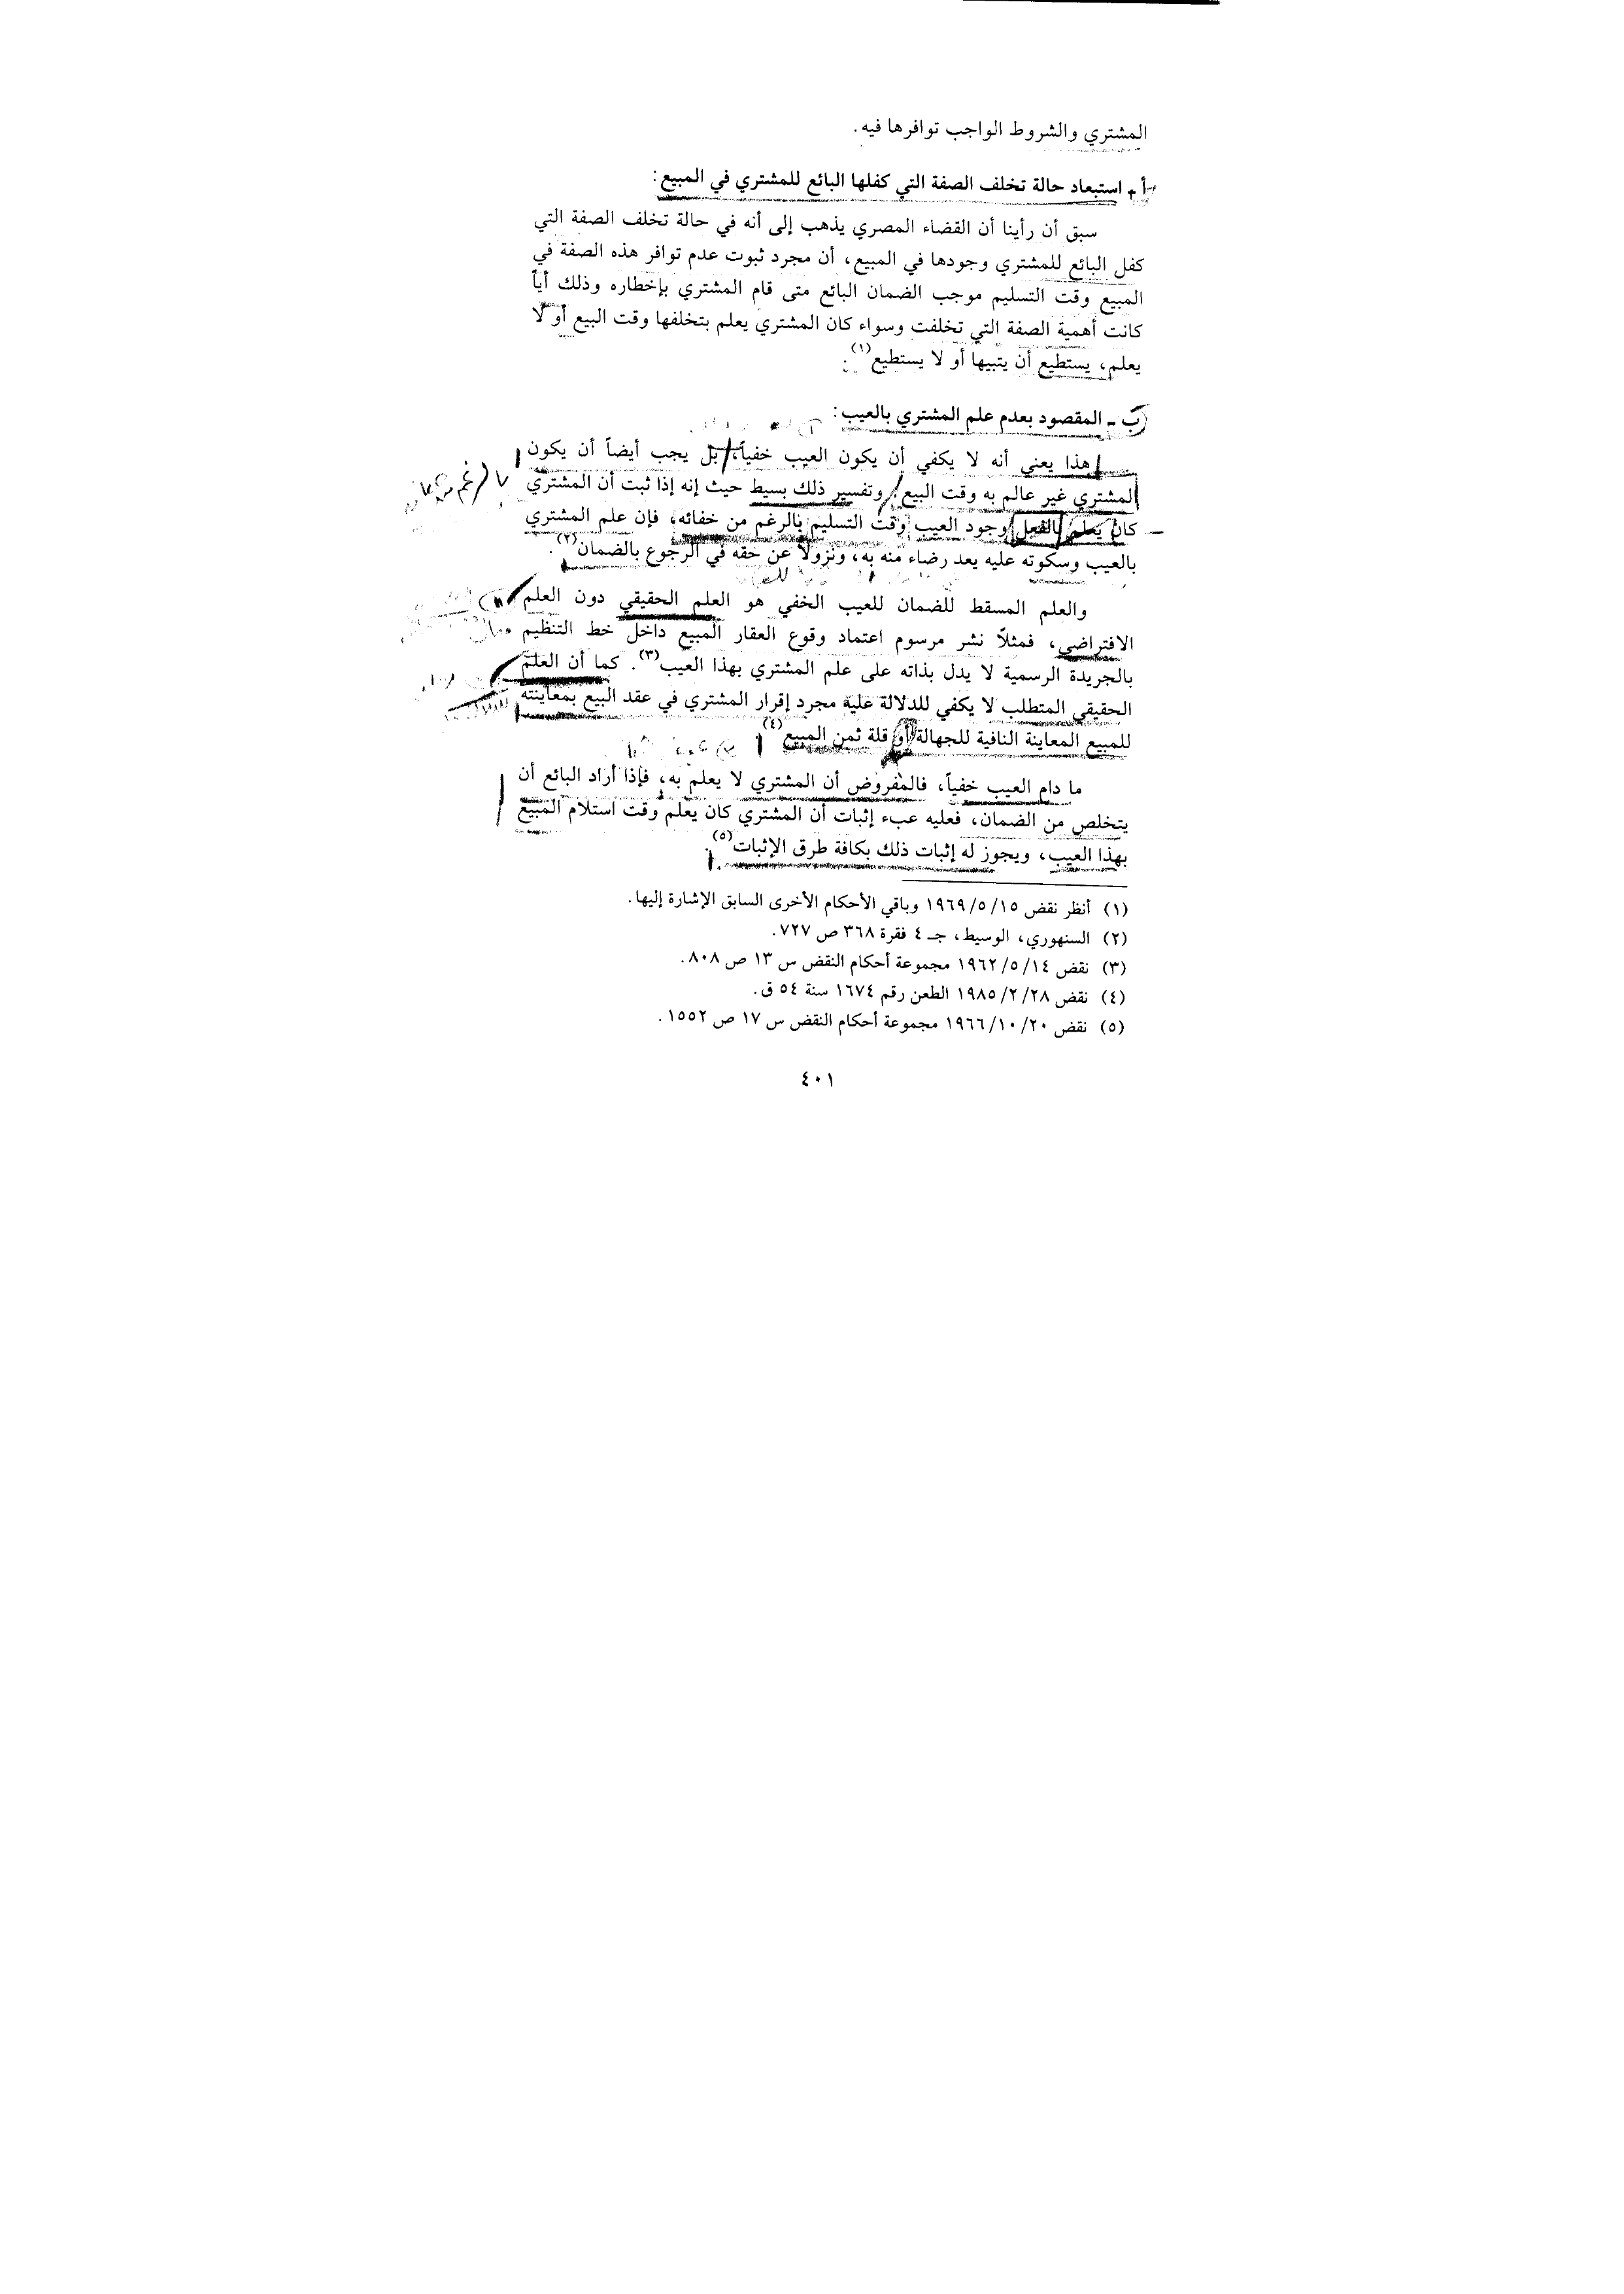 المشتري والشروط الواجب توافرها فيه.
أ ـ استبعاد حالة تخلف الصفة التي كفلها البائع للمشتري في المبيع:
سبق أن رأينا أن القضاء المصري يذهب إلى أنه في حالة تخلف الصفة التي
كفل البائع للمشتري وجودها في المبيع، أن مجرد ثبوت عدم توافر هذه الصفة في
المبيع وقت التسليم موجب الضمان البائع متى قام المشتري بإخطاره وذلك أياً
كانت أهمية الصفة التي تخلفت وسواء كان المشتري يعلم بتخلفها وقت البيع أو لا
يعلم، يستطيع أن يتبيها أو لا يستطيع(١).
ب ـ المقصود بعدم علم المشتري بالعيب:
هذا يعني أنه لا يكفي أن يكون العيب خفياً، بل يجب أيضاً أن يكون
المشتري غير عالم به وقت البيع، وتفسير ذلك بسيط حيث إنه إذا ثبت أن المشتري
كان يعلم بالفعل وجود العيب وقت التسليم بالرغم من خفائه، فإن علم المشتري
بالعيب وسكوته عليه يعد رضاء منه به، ونزولاً عن حقه في الرجوع بالضمان(٢).
والعلم المسقط للضمان للعيب الخفي هو العلم الحقيقي دون العلم
الافتراضي، فمثلاً نشر مرسوم اعتماد وقوع العقار المبيع داخل خط التنظيم
بالجريدة الرسمية لا يدل بذاته على علم المشتري بهذا العيب(٣). كما أن العلم
الحقيقي المتطلب لا يكفي للدلالة عليه مجرد إقرار المشتري في عقد البيع بمعاينته
للمبيع المعاينة النافية للجهالة أو قلة ثمن المبيع(٤)
ما دام العيب خفياً، فالمفروض أن المشتري لا يعلم به، فإذا أراد البائع أن
يتخلص من الضمان، فعليه عبء إثبات أن المشتري كان يعلم وقت استلام المبيع
بهذا العيب، ويجوز له إثبات ذلك بكافة طرق الإثبات(٥).
(١) أنظر نقض ١٩٦٩/٥/١٥ وباقي الأحكام الأخرى السابق الإشارة إليها.
(٢) السنهوري، الوسيط، جـ ٤ فقرة ٣٦٨ ص ٧٢٧.
(٣) نقض ١٩٦٢/٥/١٤ مجموعة أحكام النقض س ١٣ ص ٨٠٨.
(٤) نقض ١٩٨٥/٢/٢٨ الطعن رقم ١٦٧٤ سنة ٥٤ ق.
(٥) نقض ١٩٦٦/١٠/٢٠ مجموعة أحكام النقض س ١٧ ص ١٥٥٢.
٤٠١